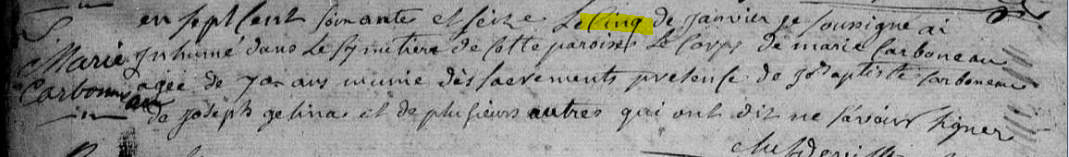 S
en sept cent soixante et seize Le Cinq de janvier je soussigné ai
Marie
inhumé dans Le Symetiere de cette paroisse Le Corps de marie Carboneau
Carbonneau
agée de 70 ans munie des sacrements presence de Jn Baptiste Carboneau
de joseph gelinas et de plusieurs autres qui ont dit ne savoir Signer